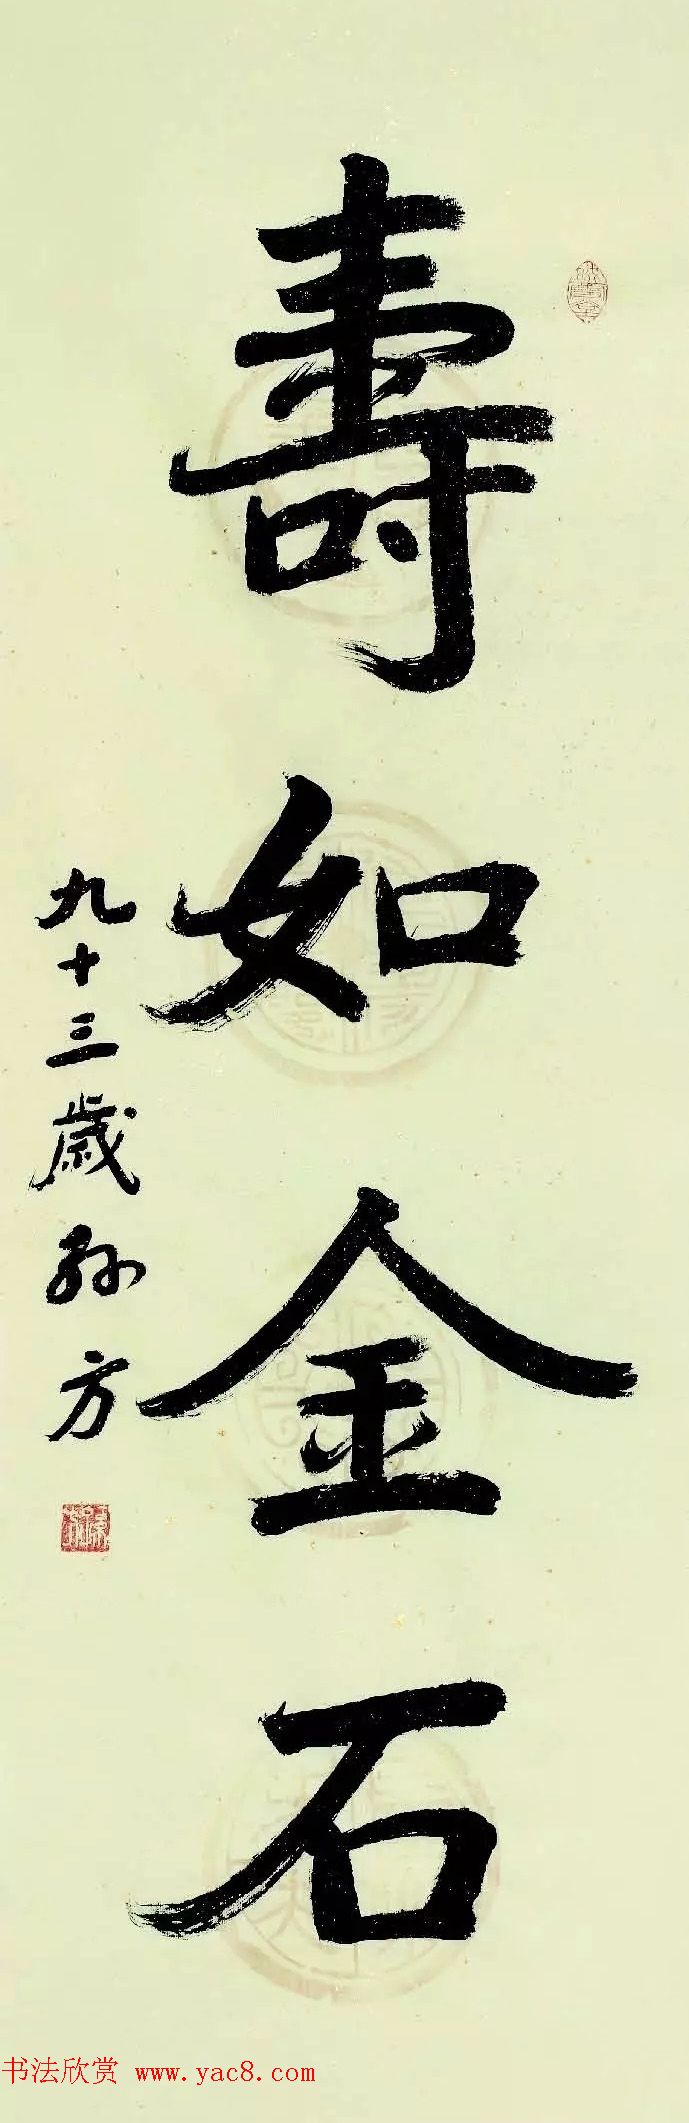 壽如金石
九十三歲孫方
书法欣赏 www.yac8.com